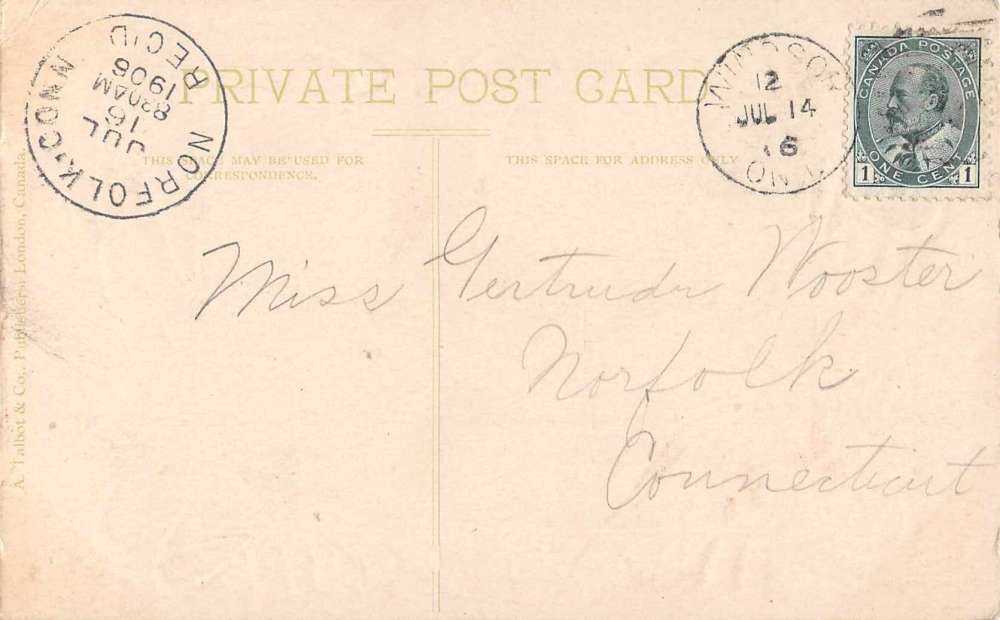 NORFOLK, CONN.
JUL
16
830AM
1906
REC'D
PRIVATE POST CARD
WINDSOR
12
JUL 14
6
ONT
CANADA POSTAGE
1 ONE CENT 1
THIS SPACE MAY BE USED FOR
CORRESPONDENCE.
THIS SPACE FOR ADDRESS ONLY
Miss Gertrude Wooster
Norfolk
Connecticut
A. Talbot & Co., Publishers, London, Canada.